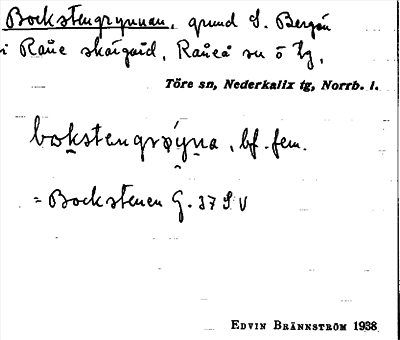 Bockstengrynnan, grund S. Bergön
i Råne skärgård, Råneå sn o tg,
Töre sn, Nederkalix tg, Norrb. l.
bokstengrøyna, bf. fem.
= Bockstenen G. 37 S V
EDVIN BRÄNNSTRÖM 1938